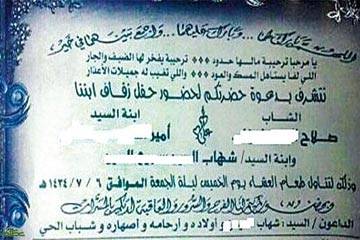 يا مرحبا ترحيبة مالها حدود *** ترحيبة يفخر لها الضيف والجار
اللي لفا يستاهل المسك والعود *** واللي تغيب له جميلات الأعذار
نتشرف بدعوة حضرتكم لحضور حفل زفاف ابننا
الشاب
ابنة السيد
صلاح
أمير
وابنة السيد/ شهاب
وذلك لتناول طعام العشاء يوم الخميس ليلة الجمعة الموافق ٦ / ٧ / ١٤٣٤ هـ
الداعون / السيد/ شهاب
وأولاده وأرحامه وأصهاره وشباب الحي